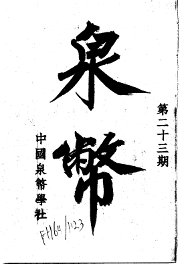 泉幣
第二十三期
中國泉幣學社